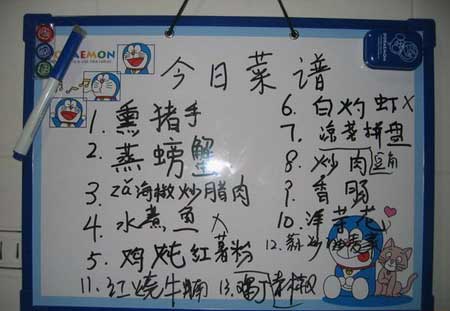 DORAEMON
今日菜谱
1. 熏猪手
2. 蒸螃蟹
3. zǎ海椒炒腊肉
4. 水煮鱼 X
5. 鸡炖红薯粉
11. 红烧牛腩
6. 白灼虾 X
7. 凉菜拼盘
8. 炒肉
9. 香肠
10. 洋芋花
12. 蒜炒
13.